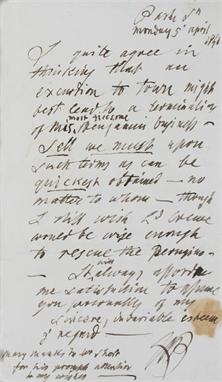 Park St
Monday 5 April
I quite agree in
thinking that an
excursion to town might
best lead to a termination
most tiresome
of this Benjamin business –
Sell we must upon
such terms as can be
quickest obtained – no
matter to whom – though
I still wish Ld
would be wise enough
to rescue the Perugino
– It always affords
me satisfaction to assure
you personally of my
sincere, invariable esteem
& regard –
many thanks to
for his prompt attention
to my wishes –